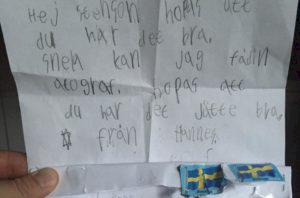 Hej stenson hopas att
du har det bra.
snell kan jag fådin
atograf. hopas att
du har det jätte bra.
från Hannes.